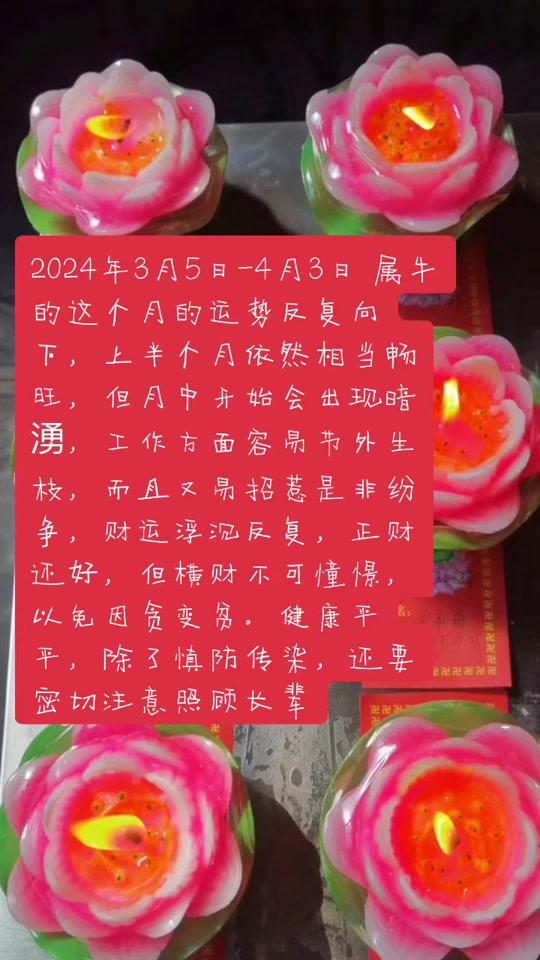 2024年3月5日-4月3日 属牛
的这个月的运势反复向
下，上半个月依然相当畅
旺，但月中开始会出现暗
湧，工作方面容易节外生
枝，而且又易招惹是非纷
争，财运浮沉反复，正财
还好，但横财不可憧憬，
以免因贪变贫。健康平
平，除了慎防传染，还要
密切注意照顾长辈